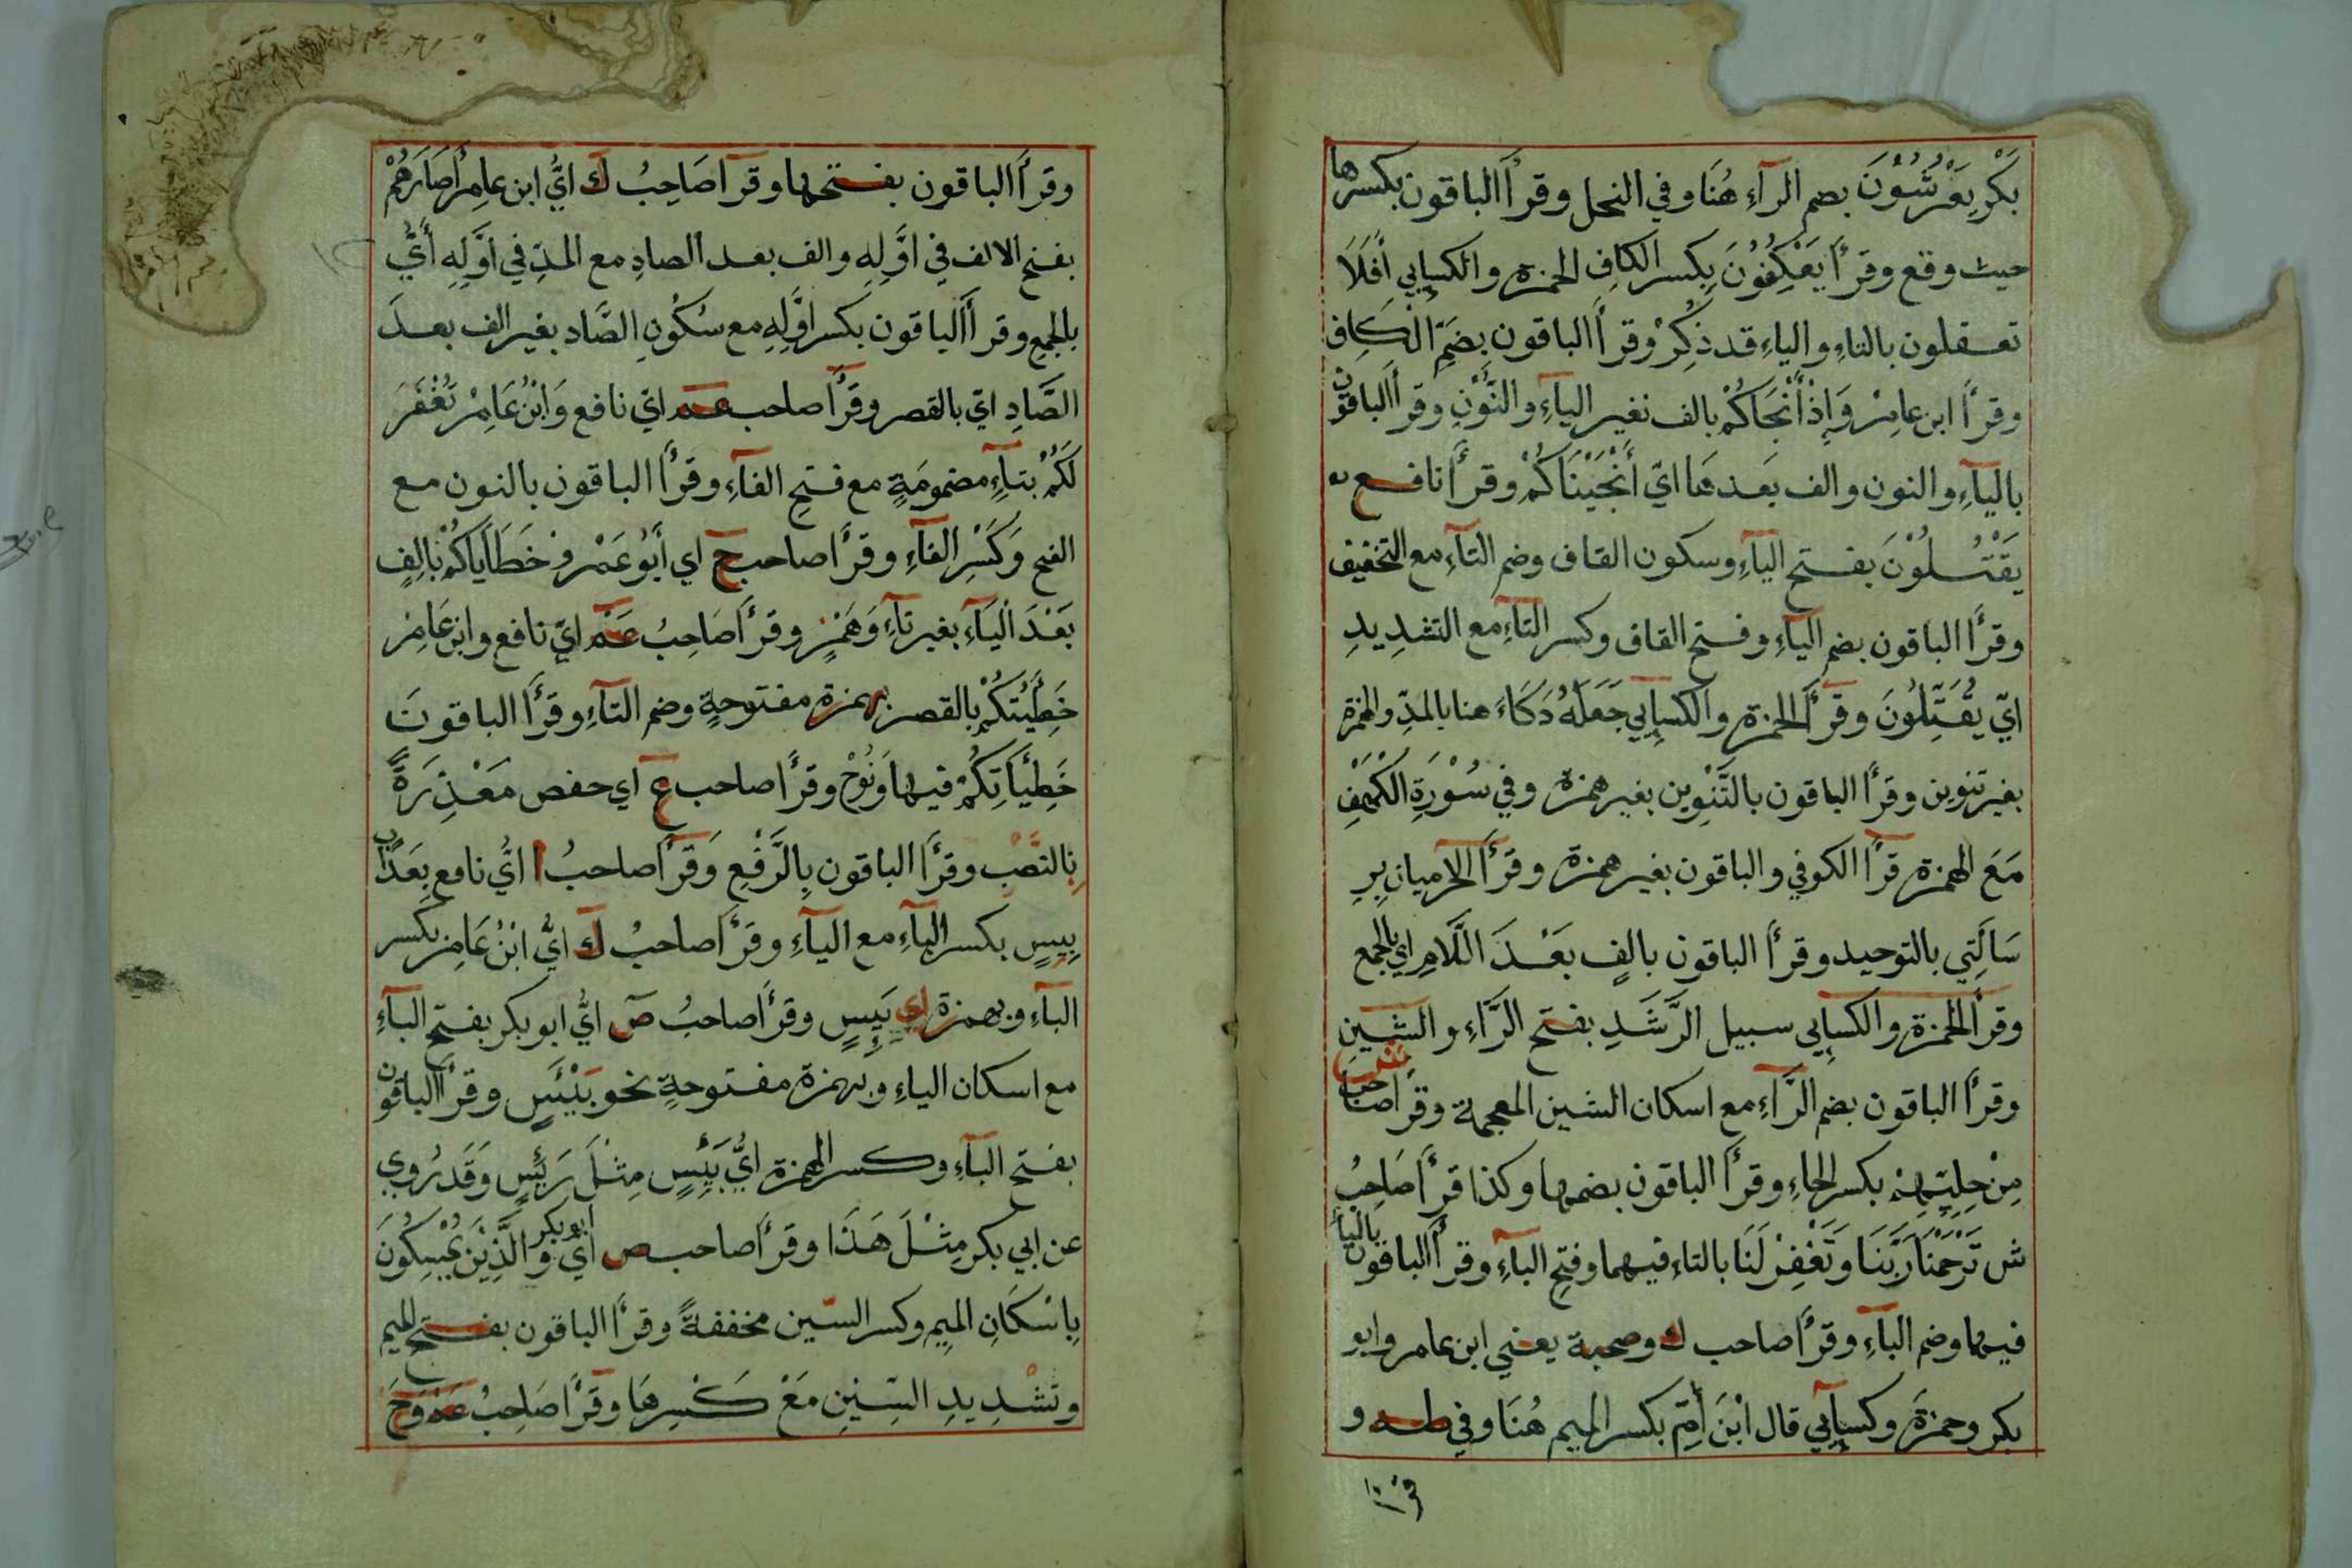 بَكْرٍ يَعْرُشُوْنَ بضم الرآءِ هُنَا وفي النحل وقرأَ الباقون بكسرها
حيث وقع وقرأَ يَعْكِفُوْنَ بِكسر الكافِ الحمزة والكسإيي أَفَلَا
تعقلون بالتاءِ والياءِ قد ذُكِرْ وقرأَ الباقون بِضَمِّ الْكَافِ
وقرأَ ابن عامِرْ وَإِذْ أَنْجَاكُمْ بالف بغير اليآءِ والنُّوْنِ وقرأَ الباقون
باليآءِ والنون والف بَعدهَا ايّ أَنْجَيْنَاكُمْ وقرأَ نافع
يَقْتُلُوْنَ بفتح اليآءِ وسكون القاف وضم التآءِ مع التخفيف
وقرأَ الباقون بضم اليآءِ وفتح القاف وكسر التآءِ مع التشدِيدِ
ايّ يُقَتِّلُوْنَ وقرأَ الحمزة والكسإيي جَعَلَهُ دَكَاءَ هنا بالمدِّ والهمزة
بغير تنوين وقرأَ الباقون بالتَّنْوِين بغير همزة وفي سُوْرَةِ الْكَهْفِ
مَعَ الهمزة قرأَ الكوفي والباقون بغير همزة وقرأَ الحرميان بِرِ
سَالَتِي بالتوحيد وقرأَ الباقون بالفٍ بَعْدَ اللَّامِ اي بالجمع
وقرأَ الحمزة والكسإيي سبيل الرَّشَدِ بفتح الرَّاءِ والشين
وقرأَ الباقون بضم الرَّآءِ مع اسكان الشين المعجمة وقرأَ صاحب
مِنْ حِلِيِّهِمْ بكسر الحاءِ وقرأَ الباقون بضمها وكذا قرأَ صَاحِبُ
ش تَرْحَمْنَا رَبَّنَا وَتَغْفِرْ لَنَا بالتاءِ فيهما وفتحِ البآءِ وقرأَ الباقون بالياءِ
فيهما وضم البآءِ وقرأَ صاحب ك وصحبة يعني ابن عامر وابو
بكر وحمزَة وكسإيي قال ابْنَ أُمِّ بكسر الميم هُنَا وفي طه و
وقرأَ الباقون بفتحها وقرأَ صَاحِبُ ك ايُّ ابن عامِرْ أَصَارَهُمْ
بفتح الالف في اوَّلِهِ والف بعد الصادِ مع المدِّ في أوَّلِهِ أَيُّ
بلجمع وقرأَ الباقون بكسر اوَّلِهِ مع سُكُونِ الصَّاد بغير الف بعدَ
الصَّادِ ايّ بالقصر وقرأَ صاحب عم ايّ نافع وَابْنُ عَامِرْ تُغْفَرْ
لَكُمْ بتآءٍ مضمومَةٍ مع فتح الفآءِ وقرأَ الباقون بالنون مع
الفتح وَكَسْرِ الفآءِ وقرأَ صاحب ح اي أَبُوْ عَمْرو خَطَايَاكُمْ بالفٍ
بَعْدَ اليَآءِ بغير تآءِ وَهَمْزٍ وقرأَ صَاحِبُ عَمْ ايّ نافع وابن عَامِرْ
خَطِيْئَتُكُمْ بالقصر بهمزة مفتوحةٍ وضم التآءِ وقرأَ الباقونَ
خَطِيْأَتِكُمْ فيها وَنُوْحْ وقرأَ صاحب ع اي حفص مَعْذِرَةً
بالنصْبِ وقرأَ الباقون بِالرَّفْعِ وَقرأَ صاحبُ ا ايُّ نافع بِعَذَابٍ
بِيسٍ بكسر البآءِ مع اليآءِ وقرأَ صاحبُ ك ايُّ ابْنُ عَامِرْ بكسر
البآءِ وبهمزة اي بَئِسٍ وقرأَ صاحبُ ص ايُّ ابو بكر بفتح البآءِ
مع اسكان الياءِ وبهمزة مفتوحةٍ نحو بَيْئَسٍ وقرأَ الباقون
بفتح البآءِ وكسر الهمزة ايُّ بَئِيْسٍ مِثْلَ رَئِيْسٍ وَقَد رُوِي
عن ابي بكر مِثْلَ هَذَا وقرأَ صاحب ص أي ابو بكر وَالَّذِيْنَ يُمْسِكُونَ
بِاسْكَانِ الميمِ وكسر السّين مخففةً وقرأَ الباقون بفتح الميم
وتشْدِيدِ السِّيْنِ مَعْ كَسْرِهَا وقرأَ صَاحِبُ عم وَحَ